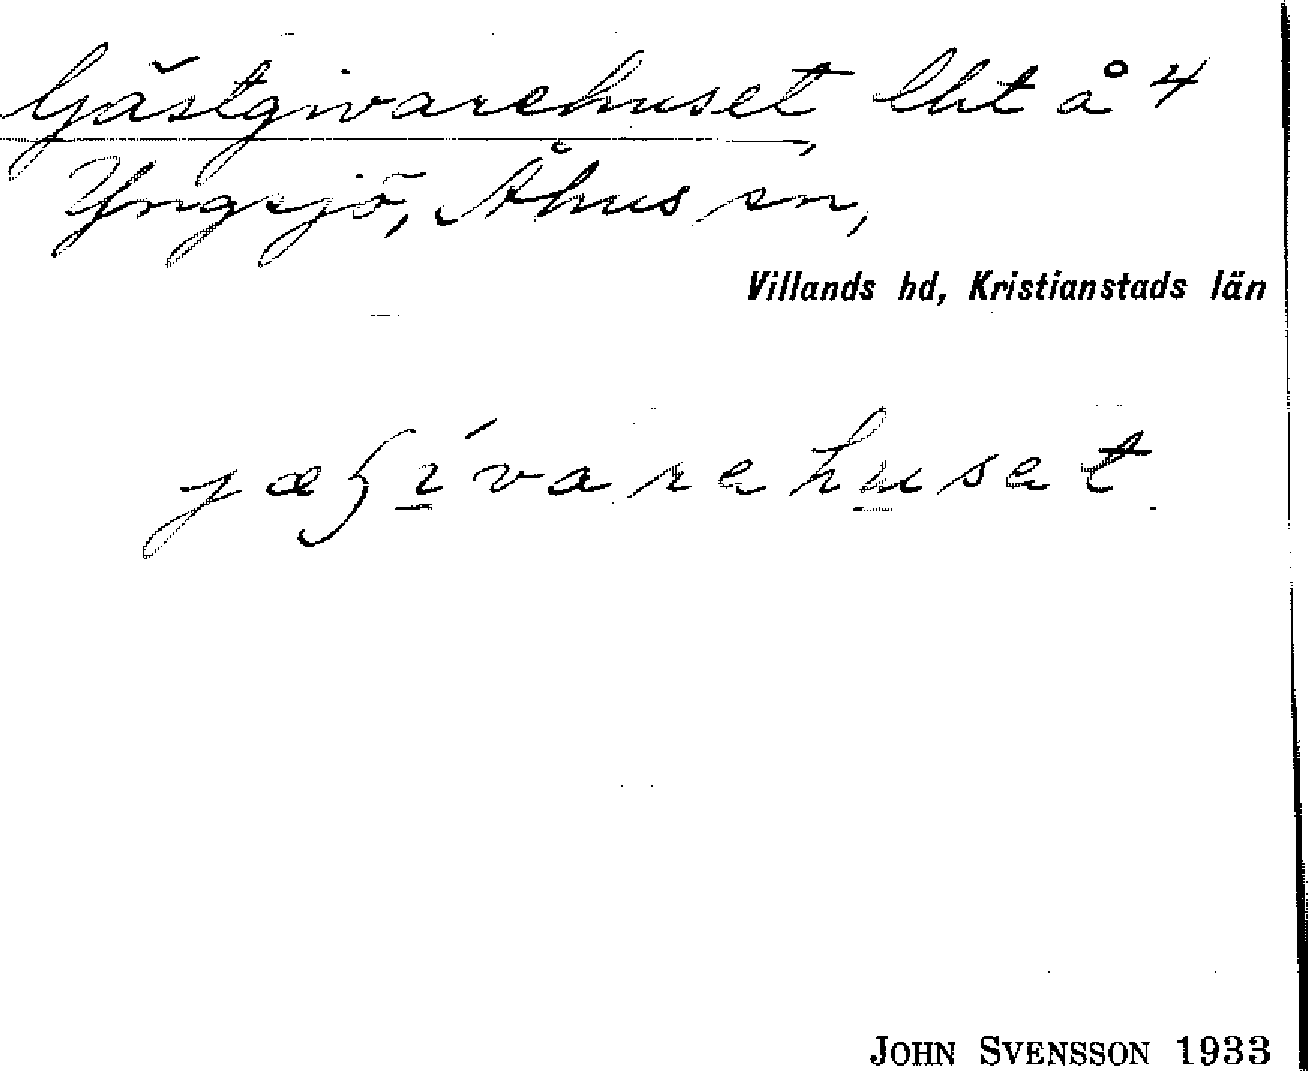 Gästgivarehuset, lht å 4
Yngsjö, Åhus sn,
Villands hd, Kristianstads län
jæʃívarehuset
JOHN SVENSSON 1933